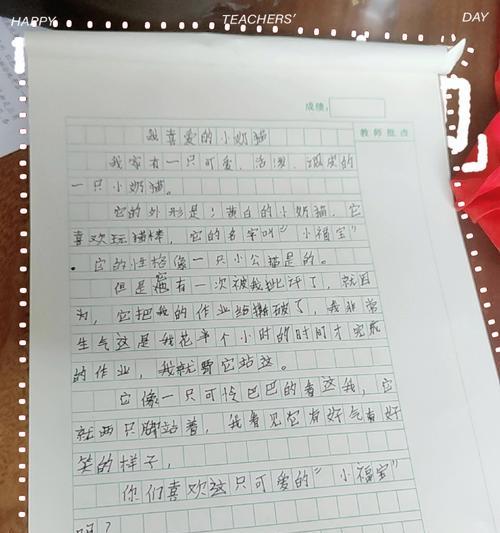 HAPPY TEACHERS' DAY
成绩：
教师批改
我喜爱的小奶猫
我家有一只可爱、活泼、调皮的
一只小奶猫。
它的外形是：黄白的小奶猫，它
喜欢玩猫棒，它的名字叫“小福宝”
。它的性格像一只小公猫是的。
但是它有一次被我批评了，就因
为，它把我的作业给撕破了，我非常
生气这是我花半个小时的时间才完成
的作业，我就罚它站这。
它像一只可怜巴巴的看这我，它
就两只脚站着，我看见它有好气有好
笑的样子，
你们喜欢这只可爱的“小福宝”
吗？